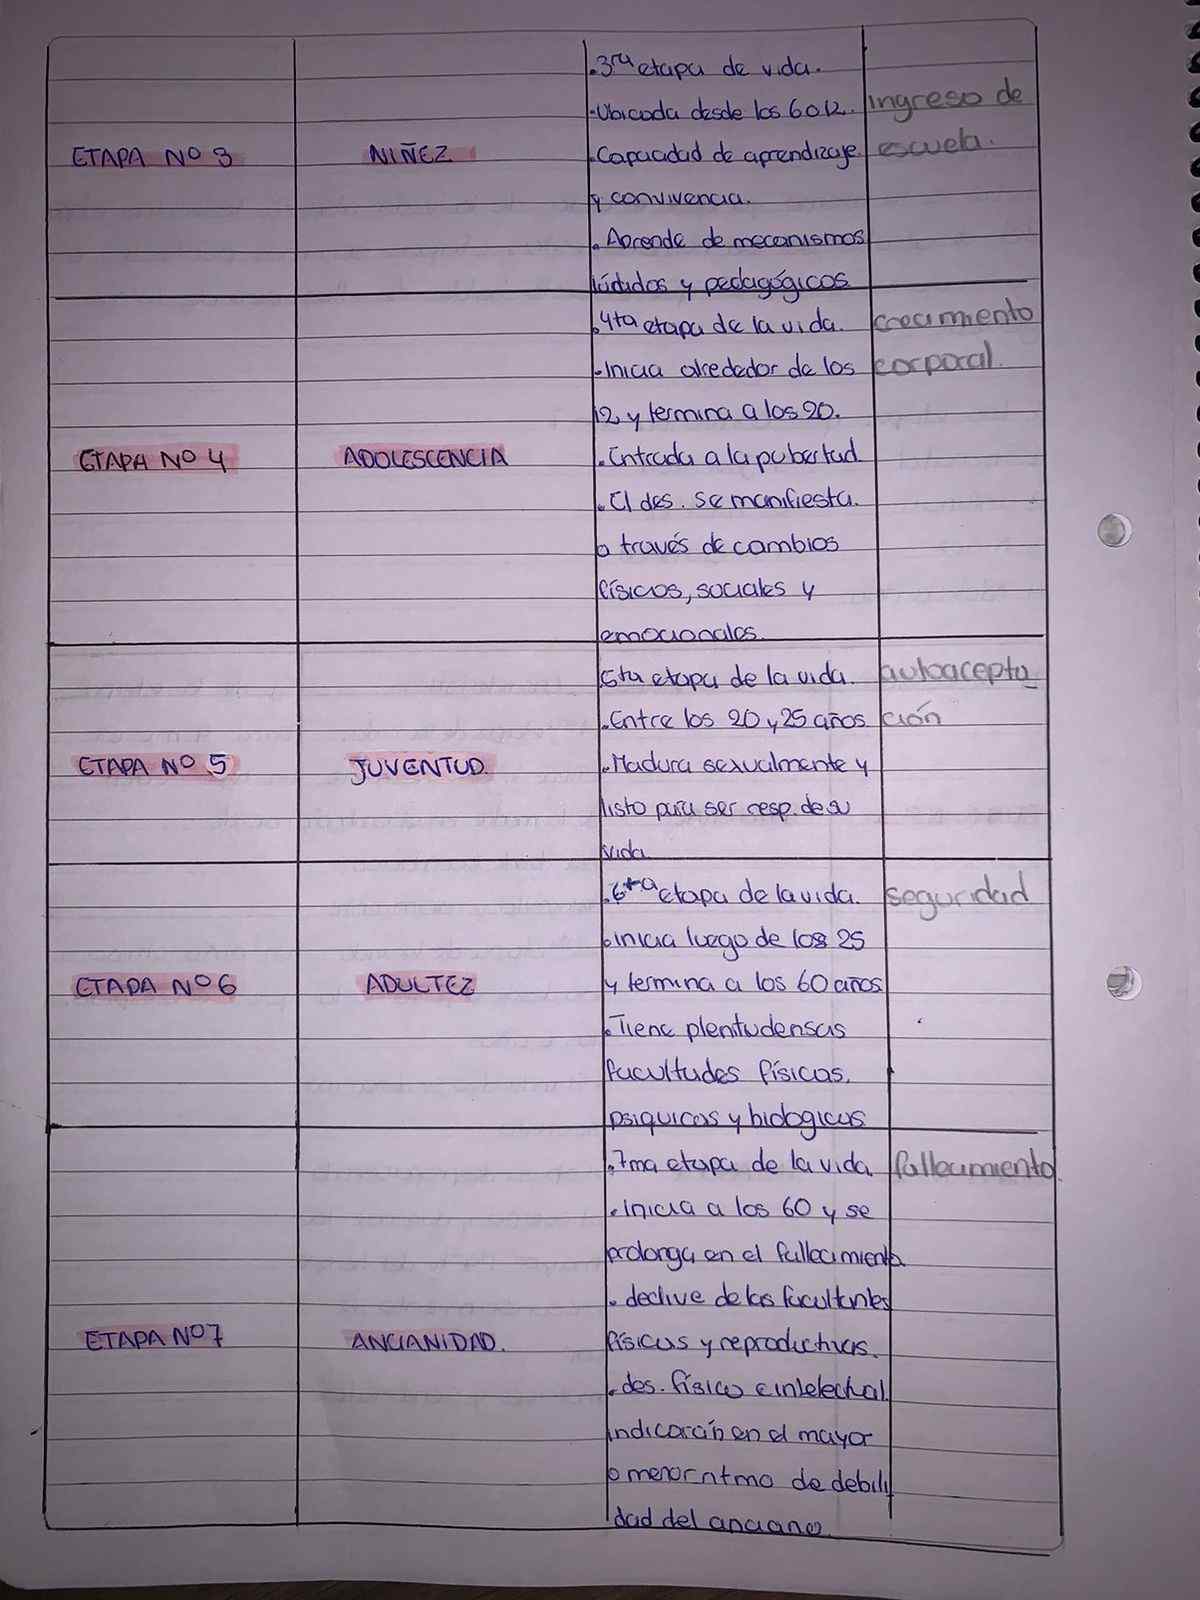 ETAPA Nº 3
NIÑEZ
.3ra etapa de vida.
.Ubicada desde los 6 o 12.
.Capacidad de aprendizaje
y convivencia.
. Aprende de mecanismos
lúdidos y pedagógicos
Ingreso de
escuela.
ETAPA Nº 4
ADOLESCENCIA
.4ta etapa de la vida.
.Inicia alrededor de los
12 y termina a los 20.
.Entrada a la pubertad.
.El des. se manifiesta.
a través de cambios
físicos, sociales y
emocionales.
crecimiento
corporal.
ETAPA Nº 5
JUVENTUD.
5ta etapa de la vida.
.Entre los 20 y 25 años
.Madura sexualmente y
listo para ser resp. de su
vida.
autoacepta_
ción
ETAPA Nº 6
ADULTEZ
.6ta etapa de la vida.
.inicia luego de los 25
y termina a los 60 años
.Tiene plenitudensas
facultades físicas,
psiquicas y biologicas
seguridad
ETAPA Nº 7
ANCIANIDAD.
.7ma etapa de la vida
.Inicia a los 60 y se
prolonga en el fallecimiento.
. declive de las facultantes
físicas y reproductivas.
.des. físico e intelectual
indicarán en el mayor
o menor ritmo de debili
dad del anciano.
fallecimiento.